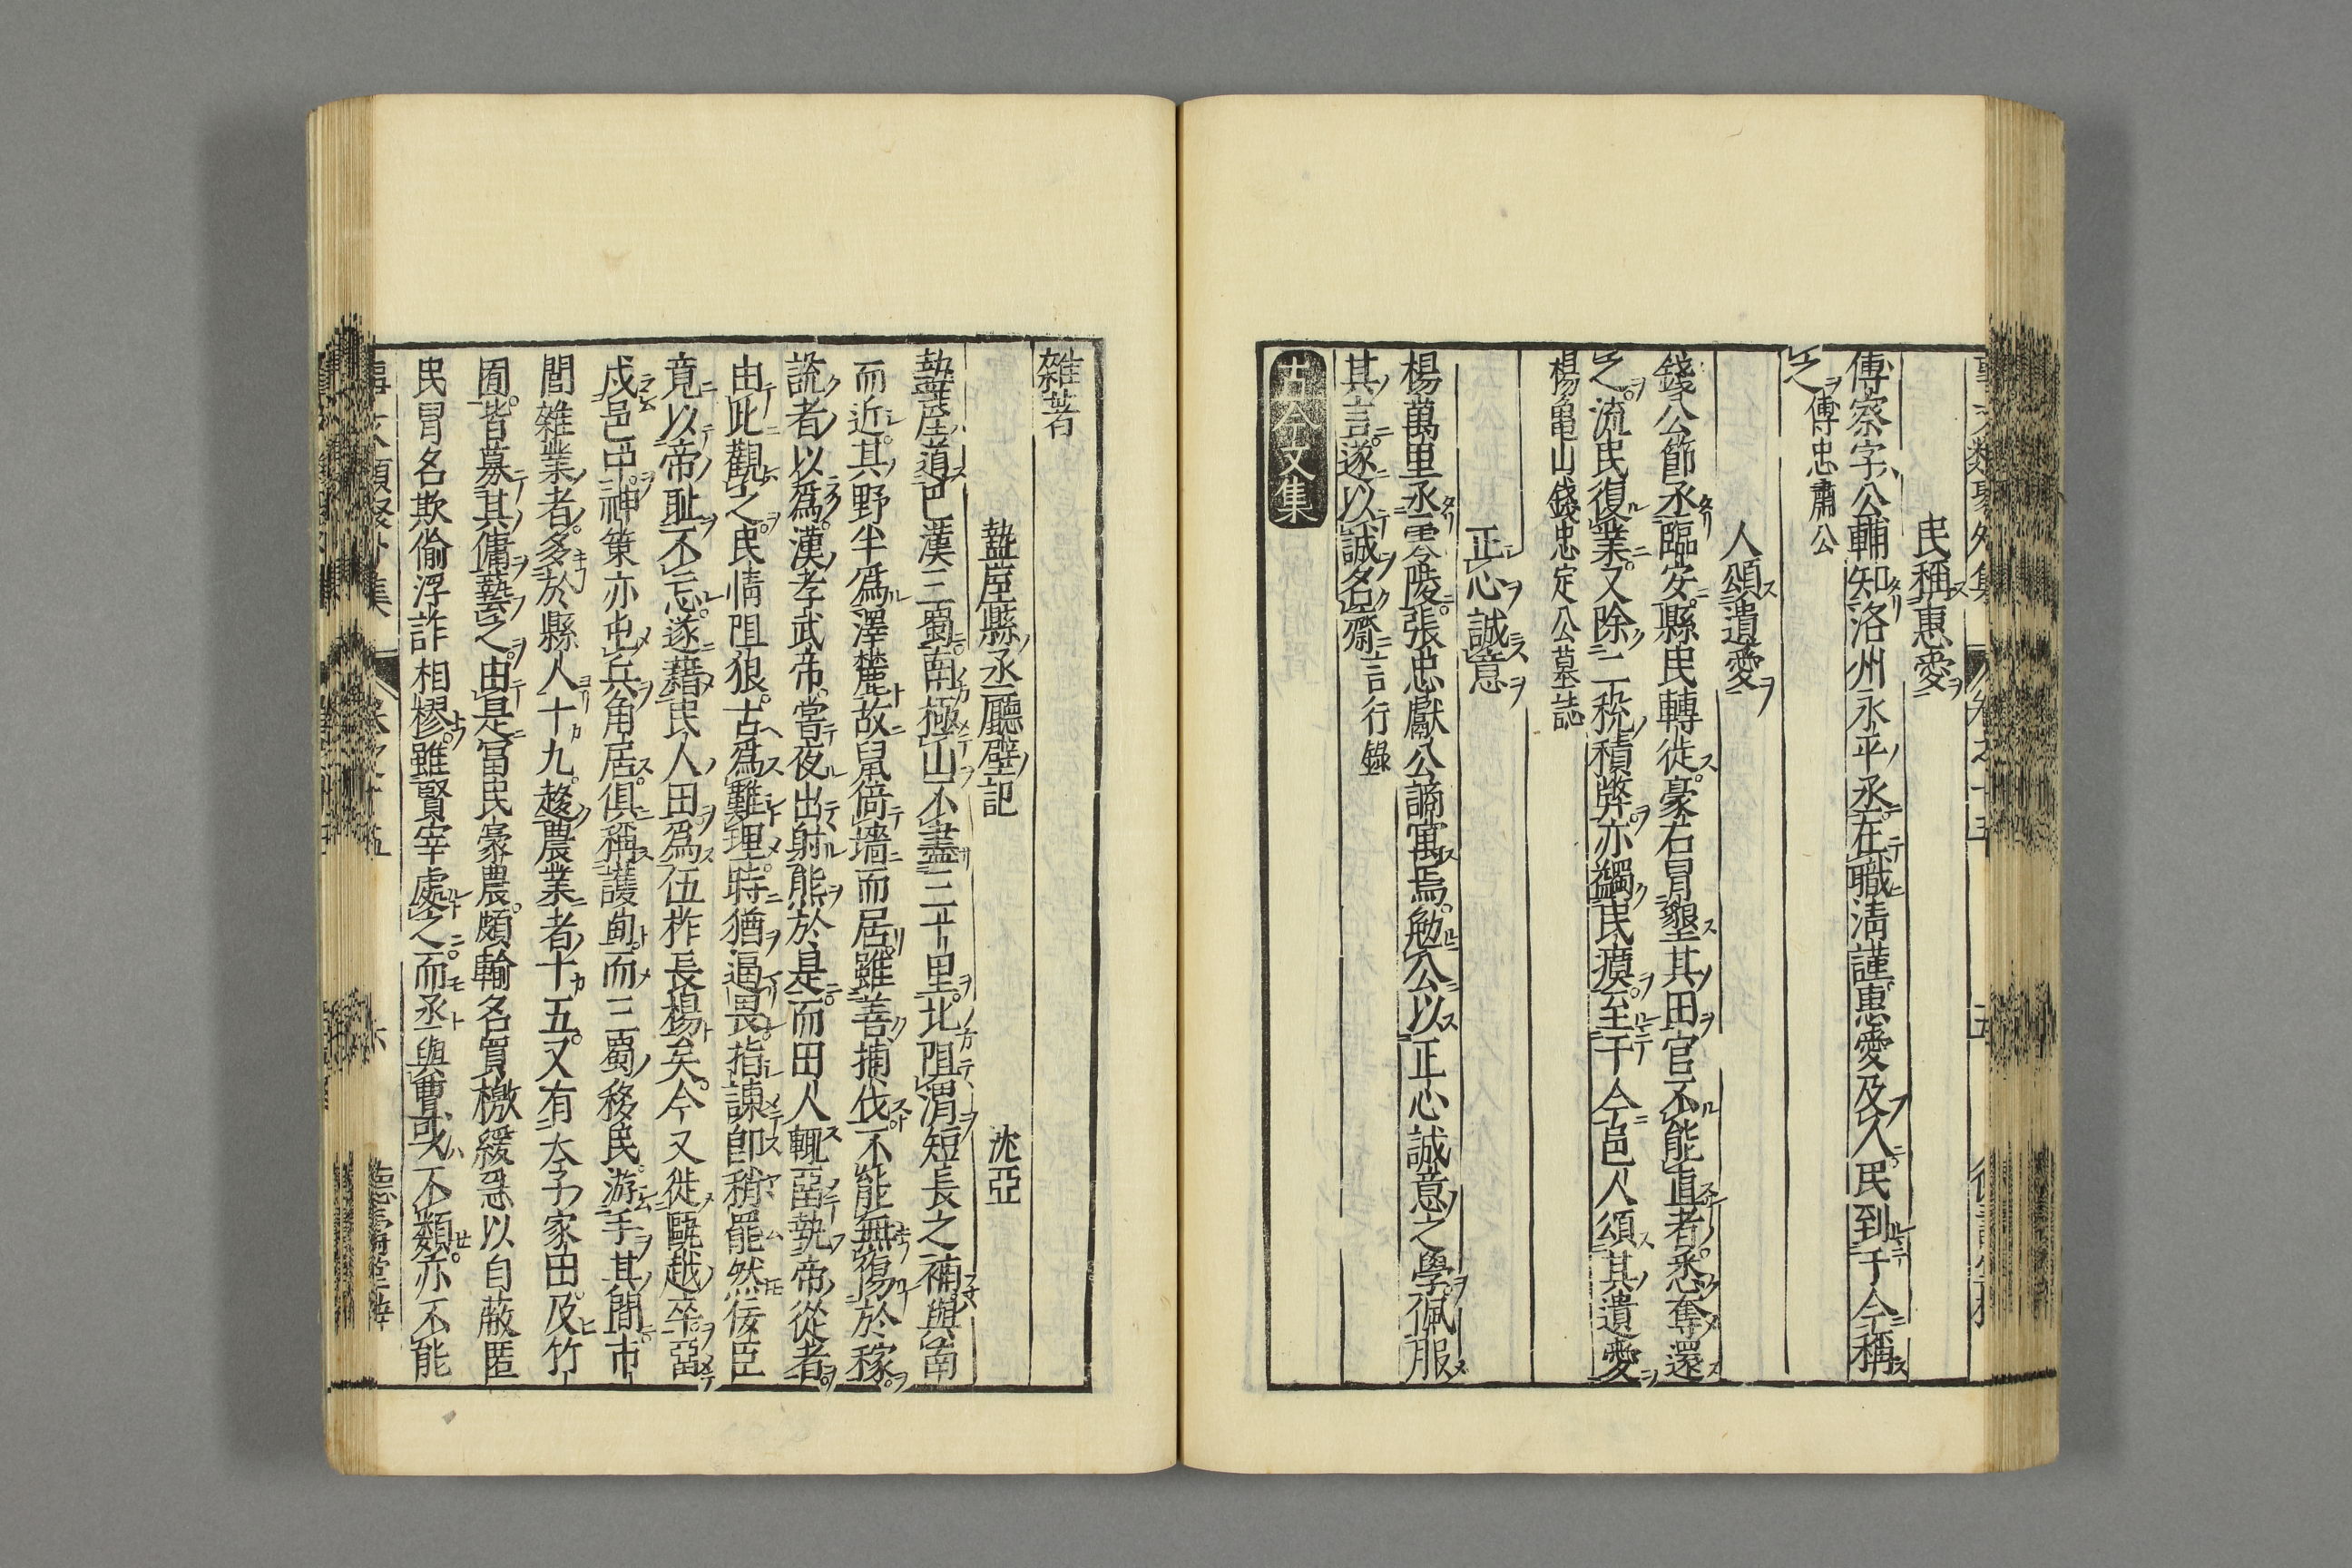 民稱惠愛
傅察字公輔知洛州永平丞在職淸謹惠愛及人民到于今稱
之傅忠肅公
人頌遺愛
錢公節丞臨安縣民轉徙豪右冒墾其田官不能直者悉奪還
之流民復業又除二稅積弊亦蠲民瘼至于今邑人頌其遺愛
楊龜山錢忠定公墓誌
正心誠意
楊萬里丞零陵張忠獻公謫寓焉勉公以正心誠意之學佩服
其言遂以誠名齋言行錄
古今文集
雜著
盩厔縣丞廳壁記 沈亞
盩厔道巴漢三蜀南極山不盡三十里北阻渭短長之補與南
而近其野半爲澤麓故鼠倚墻而居雖善捕伐不能無傷於稼
說者以爲漢孝武帝嘗夜出射熊於是而田人輒啚執帝從者
由此觀之民情阻狼古爲難理時猶逼畏指諫卽稍罷然佞臣
竟以帝耻不忘遂藉民人田爲伍柞長楊矣今又徙甌越卒啚
戍邑中神策亦屯兵角居俱稱護甸而三蜀移民游手其間市
閭雜業者多於縣人十九趍農業者十五又有太子家田及竹
囿皆募其傭藝之由是冨民豪農頗輸名買檄緩急以自蔽匿
民冒名欺偷浮詐相樛雖賢宰處之而丞與曹或不類亦不能